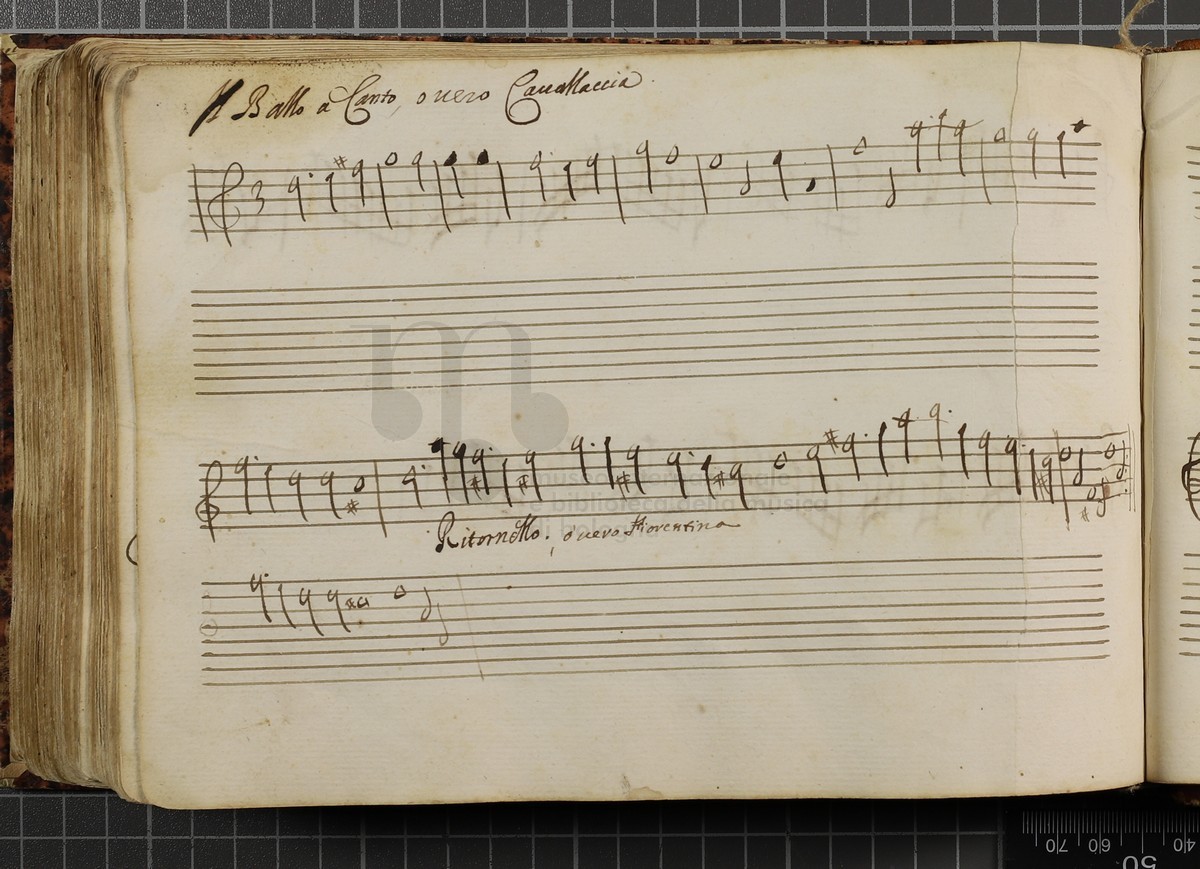 Il Ballo a Canto, overo Cavallaccia.
3
museo internazionale
e biblioteca della musica
di bologna
Ritornello. overo Fiorentina
70 60 50 40